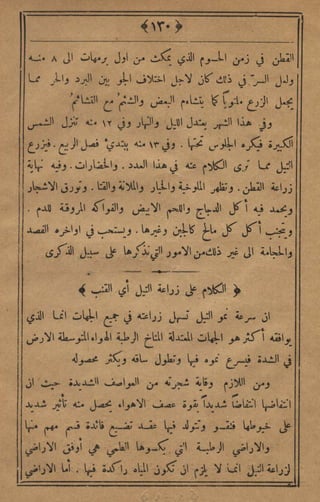 ﴿ ١٣٠ ﴾
القطن في زمن الحسوم الذي يمكث من اول برمهات الى ٨ منه
ولعل السرّ في ذلك كان لاجل اختلاف الجو بين البرد والحر مما
يجعل الزرع ملتوياً كما يتشاءم البعض والشئم مع التشائم
وفي هذا الشهر يعتدل الليل والنهار وفي ١٢ منه تنزل الشمس
الكبيرة فيكره الجلوس تحتها . وفي ١٣ منه يبتدئ فصل الربيع . فيزرع
التيل مما ترى الكلام عنه في هذا العدد . والخضارات . وفيه نهاية
زراعة القطن . وتظهر الملوخية والخيار والملانة والقتا . وتورق الاشجار
ويحمد فيه أكل الدجاج واللحم الابيض والفواكه المروقة للدم .
ويتجنب أكل كل مالح كالجبن وغيرها . ويستحب في اواخره الفصد
والحجامة الى غير ذلك من الامور التي نذكرها على سبيل الذكرى
﴿ الكلام على زراعة التيل أي القنب ﴾
ان سرعة نمو التيل تسهل زراعته في جميع الجهات انما الذي
يوافقه أكثر هو الجهات المعتدلة المناخ الرطبة الهواء المتوسطة الارض
في الشدة فيسرع نموه فيها وتطول ساقه ويكثر محصوله
ومن اللازم وقاية شجرته من العواصف الشديدة حيث ان
انتفاضها انتفاضاً شديداً بقوة عصف الاهواء يحصل منه تأثير شديد
على خيوطها فتقسو وتتولد فيها عقد تضيع فائدة قسم مهم منها
والاراضي الرطبة التي يكسوها الطمي هي أوفق الاراضي
لزراعة التيل انما لا يلزم ان تكون المياه راكدة فيها . أما الاراضي